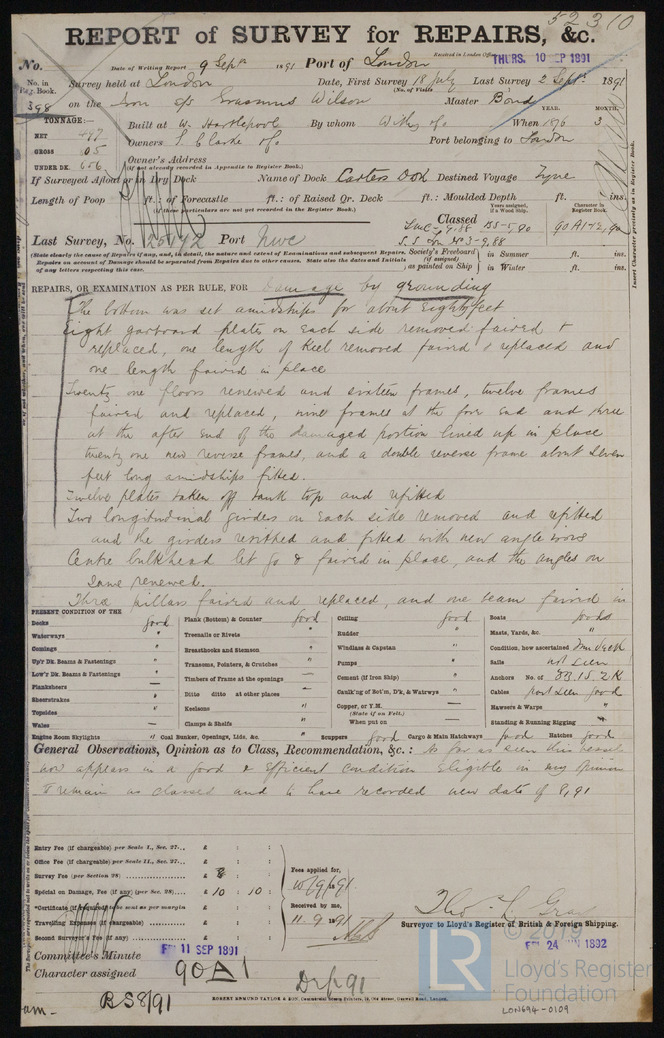 52310
REPORT of SURVEY for REPAIRS, &c.
No. Date of Writing Report 9 Septr 1891 Port of London Received in London Office THURS. 10 SEP 1891
No. in Reg. Book. Survey held at London Date, First Survey 18 July Last Survey 2 Septr 1891
(No. of Visits
398 on the Iron s/s Erasmus Wilson Master Bond
TONNAGE:— Built at W. Hartlepool By whom Withy & Co When 1876 YEAR. MONTH. 3
NET
GROSS Owners S. Clarke & Co Port belonging to London
UNDER DK. 656 Owner's Address
(if not already recorded in Appendix to Register Book.)
If Surveyed Afloat or in Dry Dock Name of Dock Carters Dok Destined Voyage Tyne
Length of Poop ft.: of Forecastle ft.: of Raised Qr. Deck ft.: Moulded Depth ft. ins.
(If these particulars are not yet recorded in the Register Book.)
Years assigned, if a Wood ship. Character in Register Book.
Classed
90A1
S.S. Lon No 3-9.88
Last Survey, No. Port Nwc
Society's Freeboard (if assigned) as painted on Ship } in Summer ft. ins.
in Winter ft. ins.
(State clearly the cause of Repairs, if any, and, in detail, the nature and extent of Examinations and subsequent Repairs.
Repairs on account of Damage should be separated from Repairs due to other causes. State also the dates and Initials of any letters respecting this case.
Insert Character precisely as in Register Book.
REPAIRS, OR EXAMINATION AS PER RULE, FOR Damage by grounding
The bottom was set amidships for about Eighty feet
Eight garboard plates on Each side removed faired &
replaced, one length of Keel removed faired & replaced and
one length faired in place
Twenty one floors renewed and sixteen frames, twelve frames
faired and replaced, nine frames at the fore End and three
at the after End of the damaged portion lined up in place
twenty one new reverse frames, and a double reverse frame about Seven
feet long amidships fitted.
Twelve plates taken off tank top and refitted
Two longitudinal girders on Each side removed and refitted
and the girders refitted with new angle irons
Centre bulkhead let go & faired in place, and the angles on
same renewed.
Three pillars faired and replaced, and one beam faired in
PRESENT CONDITION OF THE
Decks good Plank (Bottom) & Counter good Ceiling good Boats good
Waterways " Treenails or Rivets " Rudder " Masts, Yards, &c. "
Comings " Breasthooks and Stemson " Windlass & Capstan " Condition, how ascertained from deck
Up'r Dk. Beams & Fastenings " Transoms, Pointers, & Crutches " Pumps " Sails not seen
Low'r Dk. Beams & Fastenings " Timbers of Frame at the openings — Cement (if Iron Ship) " Anchors No. of 3B. 1S. 2K
Planksheers — Ditto ditto at other places — Caulk'ng of Bot'm, D'k, & Watrwys " Cables part seen good
Sheerstrakes " Keelsons " Copper, or Y.M. — Hawsers & Warps "
Topsides " Clamps & Shelfs (State if on Felt.) Standing & Running Rigging "
Wales — When put on —
Engine Room Skylights " Coal Bunker, Openings, Lids, &c. " Scuppers good Cargo & Main Hatchways good Hatches good
General Observations, Opinion as to Class, Recommendation, &c.: As far as seen this vessel
now appears in a good & Efficient condition Eligible in my opinion
to remain as classed and to have recorded new date of 8,91
Entry Fee (if chargeable) per Scale I., Sec. 27... £ : :
Office Fee (if chargeable) per Scale II., Sec. 27... £ : :
Survey Fee (per Section 28) £ : :
Special on Damage, Fee (if any) (per Sec. 28) £ 10 : 10 :
*Certificate (if required) to be sent as per margin
Travelling Expenses (if chargeable) £ : :
Second Surveyor's Fee (if any) £ : :
Fees applied for,
10/9/91
Received by me,
11.9.1891
Thos. L. Gray
Surveyor to Lloyd's Register of British & Foreign Shipping.
Committee's Minute FRI 11 SEP 1891
24 JUN 1892
Character assigned 90A1
BS8/91
ROBERT EDMUND TAYLOR & SON, Commercial Steam Printers, 19, Old Street, Goswell Road, London.
© 2019
LR
Lloyd's Register
Foundation
LON694-0109